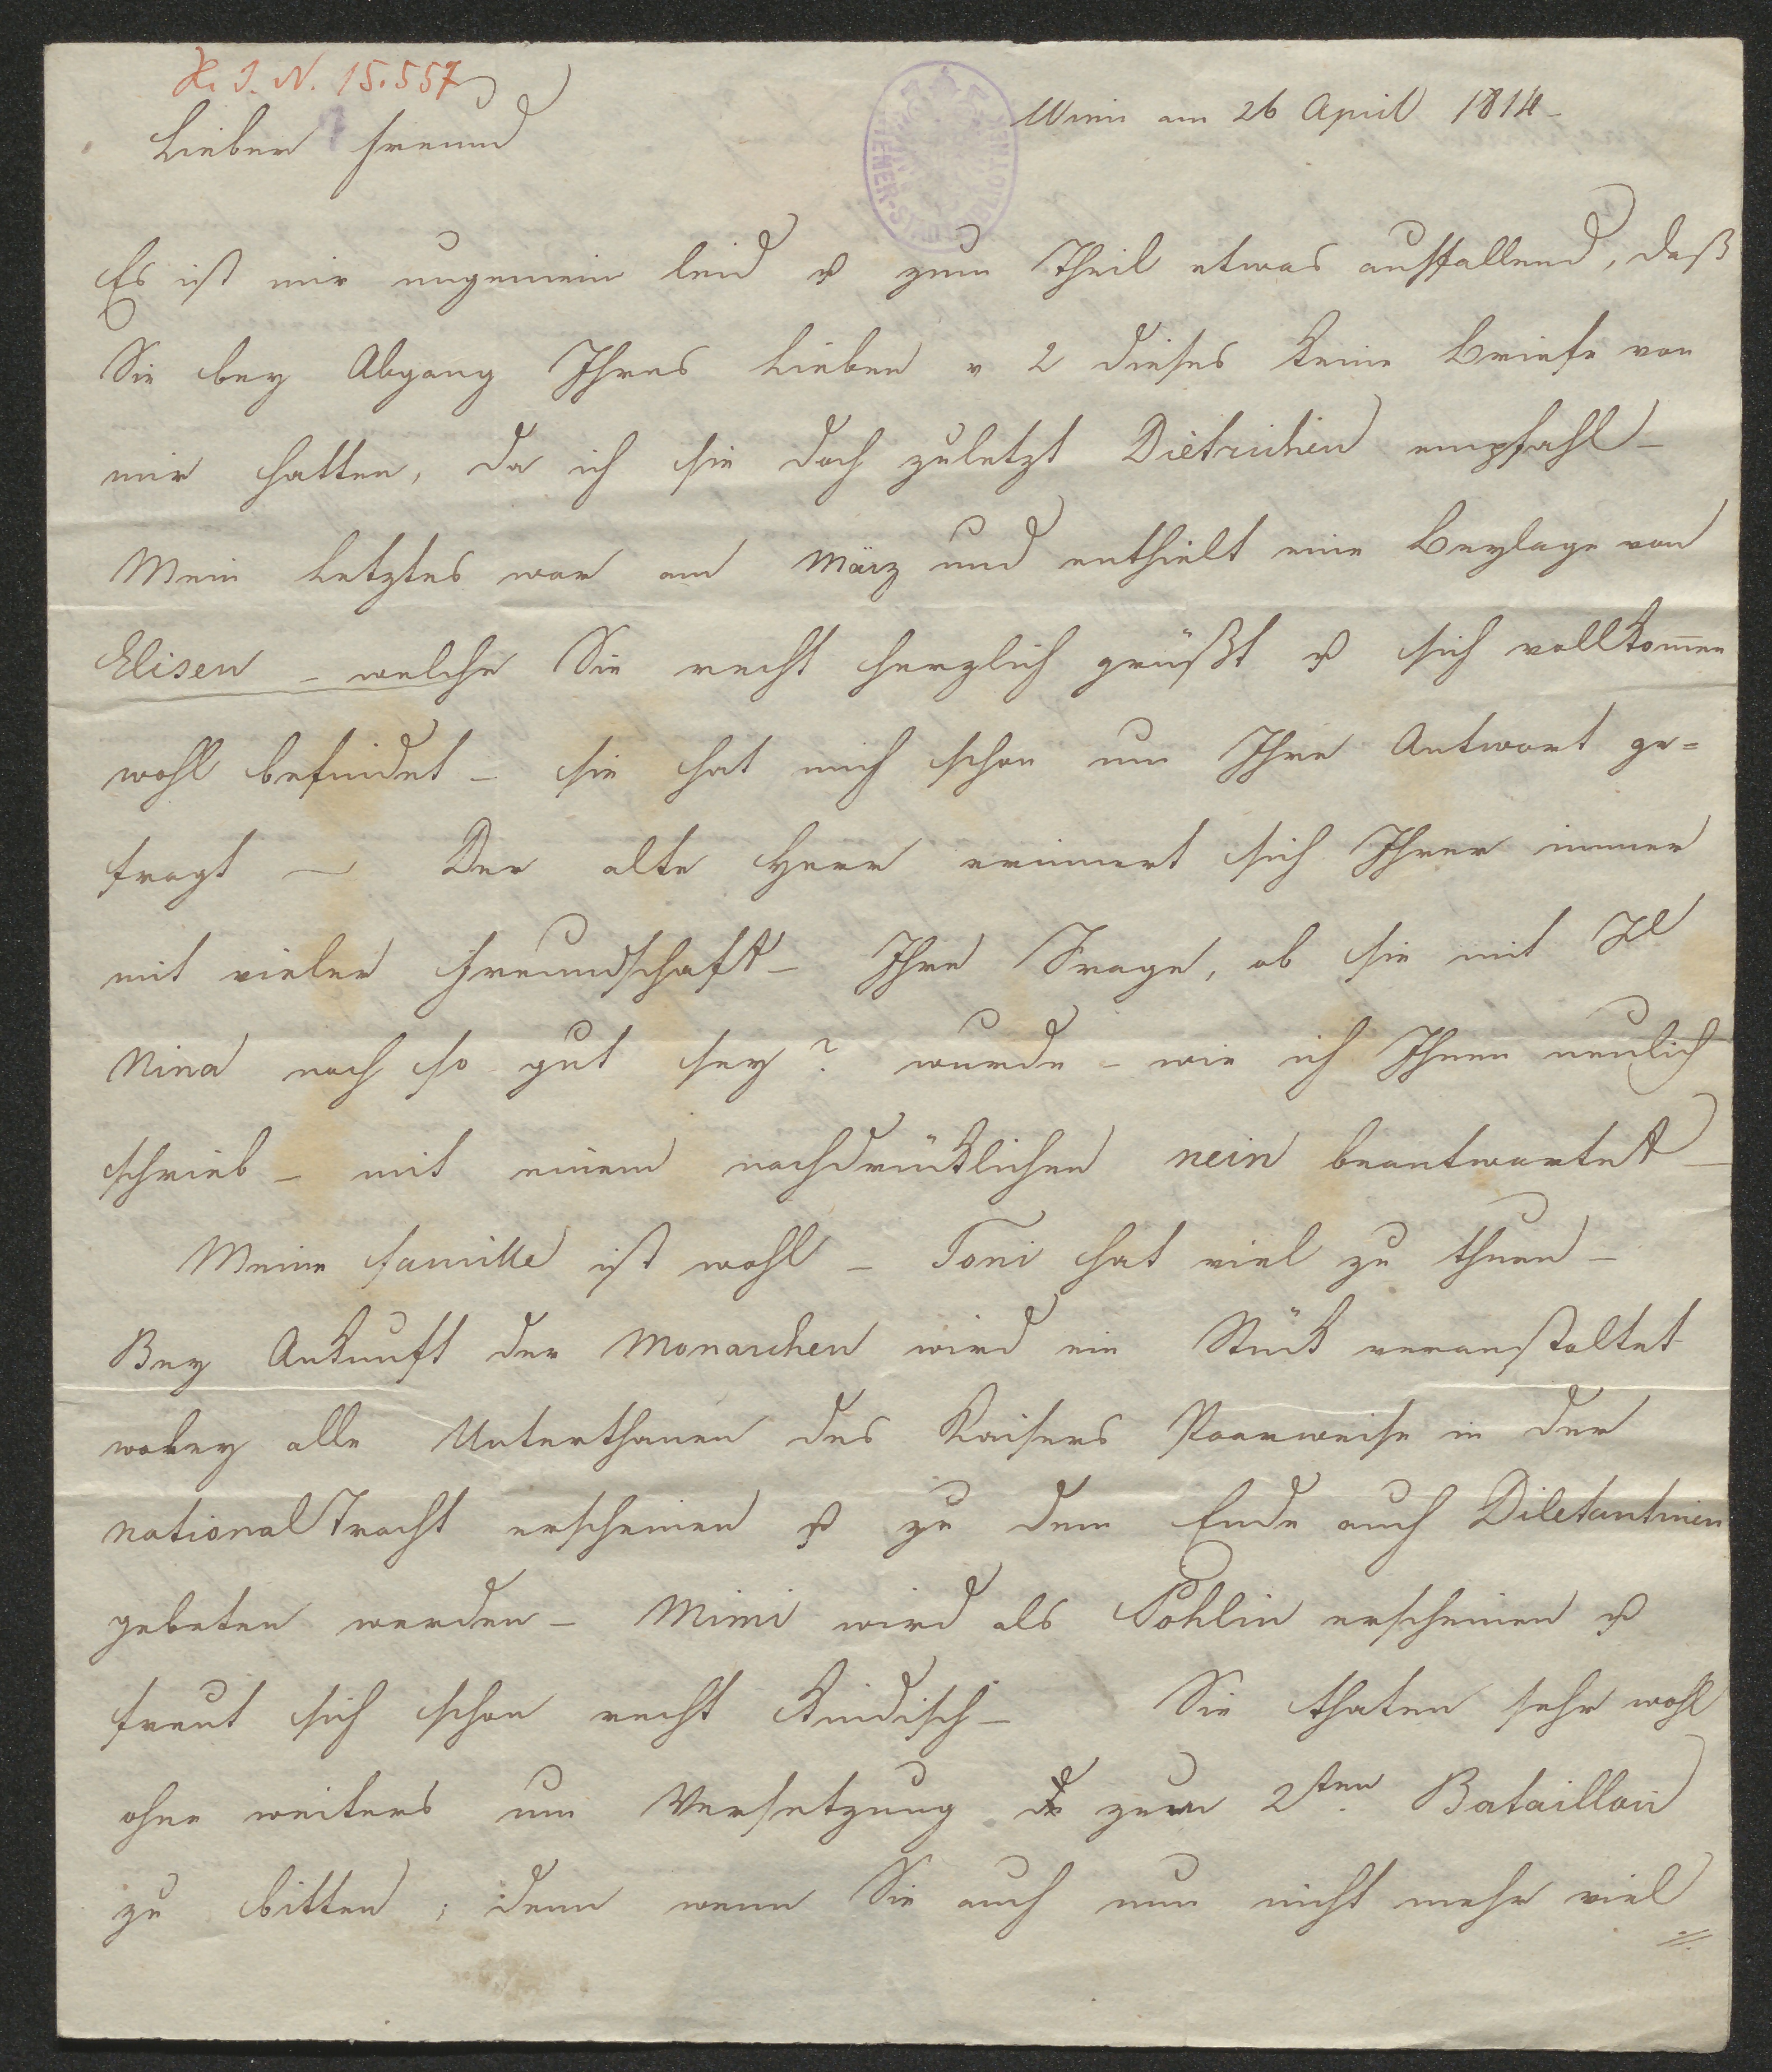 H. I. N. 15.557
Wien am 26 April 1814 -
Lieber Freund
Es ist mir ungemein leid u zum Theil etwas auffallend, daß
Sie bey Abgang Ihres Lieben v 2 dieses keine Briefe von
mir hatten, da ich sie doch zuletzt Dietrichen empfahl -
Mein Letztes war am März und enthielt eine Beylage von
Elisen - welche Sie recht herzlich grüßt u sich vollkom̅en
wohl befindet - sie hat mich schon um Ihre Antwort ge=
fragt - Der alte Herr erinnert sich Ihrer immer
mit vieler Freundschaft - Ihre Frage, ob sie mit
Nina noch so gut sey? wurde - wie ich Ihnen neulich
schrieb - mit einem nachdrücklichen nein beantwortet -
Meine famille ist wohl - Toni hat viel zu thuen -
Bey Ankunft der Monarchen wird ein Stück veranstaltet
wobey alle Unterthanen des Kaisers Paarweise in der
national Tracht erscheinen u zu dem Ende auch Diletantinen
gebeten werden - Mimi wird als Pohlin erscheinen u
freut sich schon recht kindisch - Sie thaten sehr wohl
ohne weiters um Versetzung zum 2ten Bataillon
zu bitten; denn wenn Sie auch nun nicht mehr viel